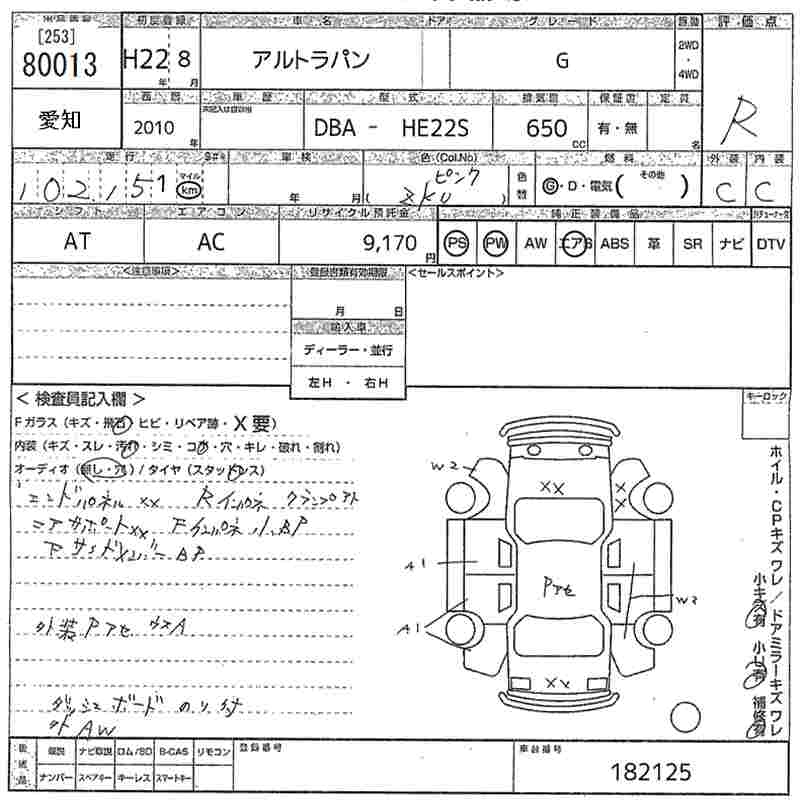 初度登録 車名 ドア グレード 評価点
[253]
80013 H22 8 アルトラパン G 2WD・4WD R
年 月
西暦 車歴 型式 排気量 保証書 定員
愛知 2010 DBA - HE22S 650 有・無
年 CC 名
走行 車検 色(Col.No) 燃料 その他 外装 内装
102,151 マイル km 年 月 ピンク ZKU 色替 G・D・電気( ) C C
シフト エアコン リサイクル預託金 純正装備品
AT AC 9,170 円 PS PW AW エアB ABS 革 SR ナビ DTV
<注意事項> 登録書類有効期限 <セールスポイント>
月 日
輸入車
ディーラー・並行
左H ・ 右H
<検査員記入欄> キーロック
Fガラス(キズ・飛石 ヒビ・リペア跡・X要)
内装(キズ・スレ・汚れ・シミ・コゲ・穴・キレ・破れ・割れ)
オーディオ(無し・穴)/タイヤ(スタッドレス)
エンドパネル XX Rインパネ クランプアト
コアサポートXX
下サイドメンバー BP
外装Pアセ
ダッシュボード のり付
外AW
W2 XX X X
A1 Pアセ W3
A1
XX
ホイル・CPキズ ワレ/ドアミラーキズ ワレ
小キズ有 小凹有 補修有
後送品 取説 ナビ取説 ロム/SD B-CAS リモコン 登録番号 車台番号
ナンバー スペアキー キーレス スマートキー 182125